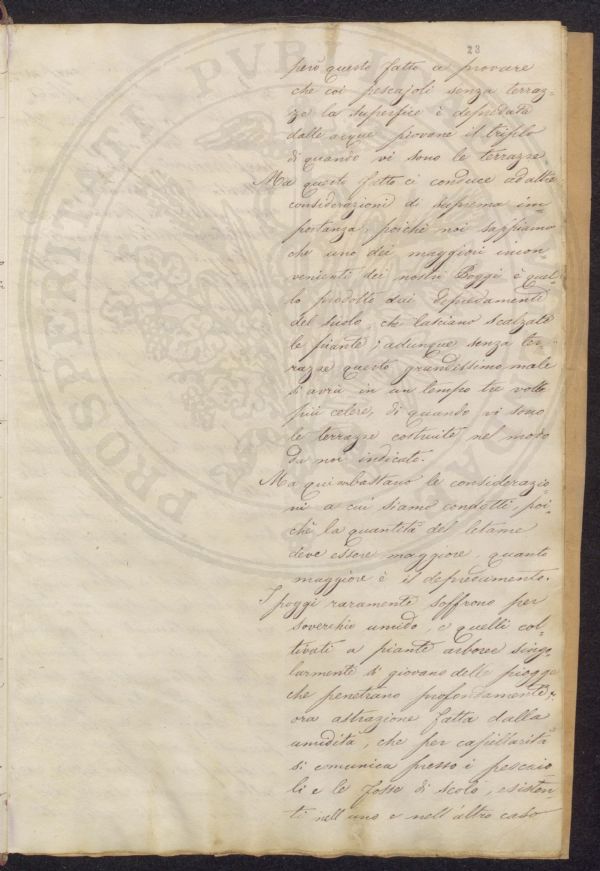 23
però questo fatto a provare
che coi pescajoli senza terraz-
ze la superficie è depredata
dalle acque piovane il triplo
di quando vi sono le terrazze
Ma questo fatto ci conduce ad altre
considerazioni di suprema im-
portanza, poichè noi sappiamo
che uno dei maggiori incon
venienti dei nostri Poggi è quel-
lo prodotto dai depredamenti
del suolo, che lasciano scalzate
le piante; adunque senza ter-
razze questo grandissimo male
si avrà in un tempo tre volte
più celere, di quando vi sono
le terrazze costruite nel modo
da noi indicato.
Ma qui non bastano le considerazio
ni a cui siamo condotti, poi-
chè la quantità del letame
deve essere maggiore, quanto
maggiore è il depredamento.
I poggi raramente soffrono per
soverchio umido, e quelli col-
tivati a piante arboree singo
larmente si giovano delle piogge
che penetrano profondamente,
ora astrazione fatta dalla
umidità, che per capillarità
si comunica presso i pescaio
li e le fosse di scolo, esisten-
ti nell'uno e nell'altro caso
PROSPERITATI PVBLICAE